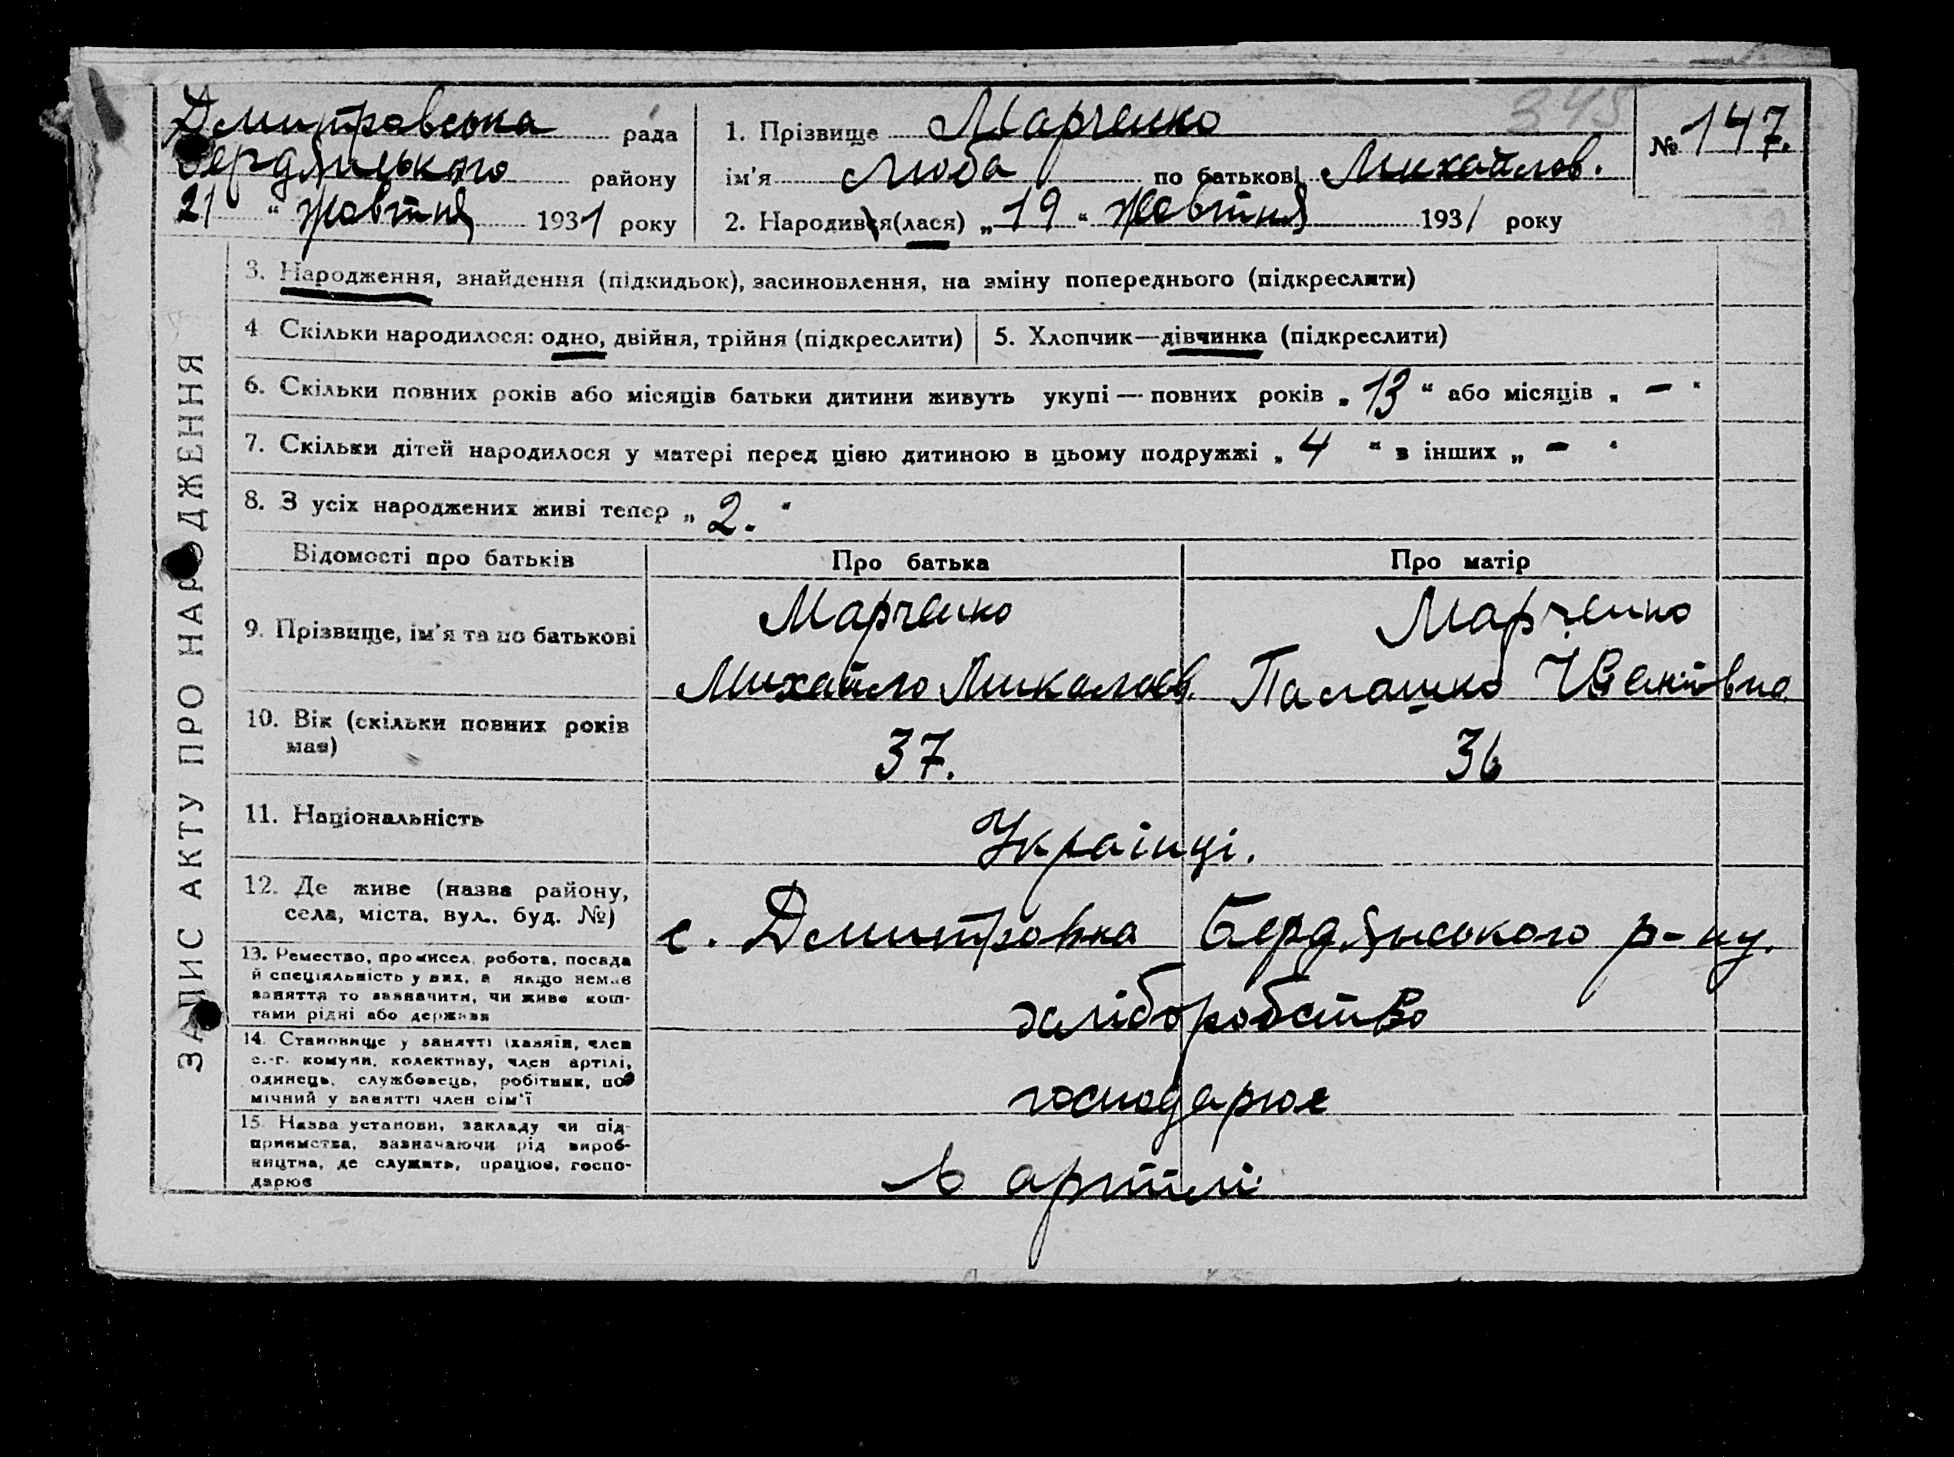 Дмитровська рада
Бердянського району
21 " жовтня 1931 року
1. Прізвище Марченко
ім'я Люба по батькові Михайлов.
2. Народився(лася) „19" жовтня 1931 року
345
№ 147.
ЗАПИС АКТУ ПРО НАРОДЖЕННЯ
3. Народження, знайдення (підкидьок), засиновлення, на зміну попереднього (підкреслити)
4 Скільки народилося: одно, двійня, трійня (підкреслити)
5. Хлопчик—дівчинка (підкреслити)
6. Скільки повних років або місяців батьки дитини живуть укупі — повних років „13" або місяців „ - "
7. Скільки дітей народилося у матері перед цією дитиною в цьому подружжі „4" в інших „ - "
8. З усіх народжених живі тепер „2."
Відомості про батьків Про батька Про матір
9. Прізвище, ім'я та по батькові
Марченко
Михайло Миколаєв.
Марченко
Палашка
10. Вік (скільки повних років
має)
37. 36
11. Національність
Украінці.
12. Де живе (назва району,
села, міста, вул., буд. №)
с. Дмитровка Бердянського р-ну.
13. Ремество, промисел, робота, посада
й спеціяльність у них, а якщо немає
заняття то зазначити, чи живе кош-
тами рідні або держави
хліборобство
14. Становище у занятті (хазяїн, член
с.-г. комуни, колективу, член артілі,
одинець, службовець, робітник, по-
мічний у занятті член сім'ї
господарює
15. Назва установи, закладу чи під-
приємства, зазначаючи рід вироб-
ництва, де служить, працює, госпо-
дарює
в артілі